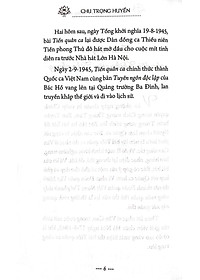 CHU TRỌNG HUYẾN
Hai hôm sau, ngày Tổng khởi nghĩa 19-8-1945,
bài Tiến quân ca lại được Dàn đồng ca Thiếu niên
Tiền phong Thủ đô hát mở đầu cho cuộc mít tinh
diễn ra trước Nhà hát Lớn Hà Nội.
Ngày 2-9-1945, Tiến quân ca chính thức thành
Quốc ca Việt Nam cùng bản Tuyên ngôn độc lập của
Bác Hồ vang lên tại Quảng trường Ba Đình, lan
truyền khắp thế giới và đi vào lịch sử.
6